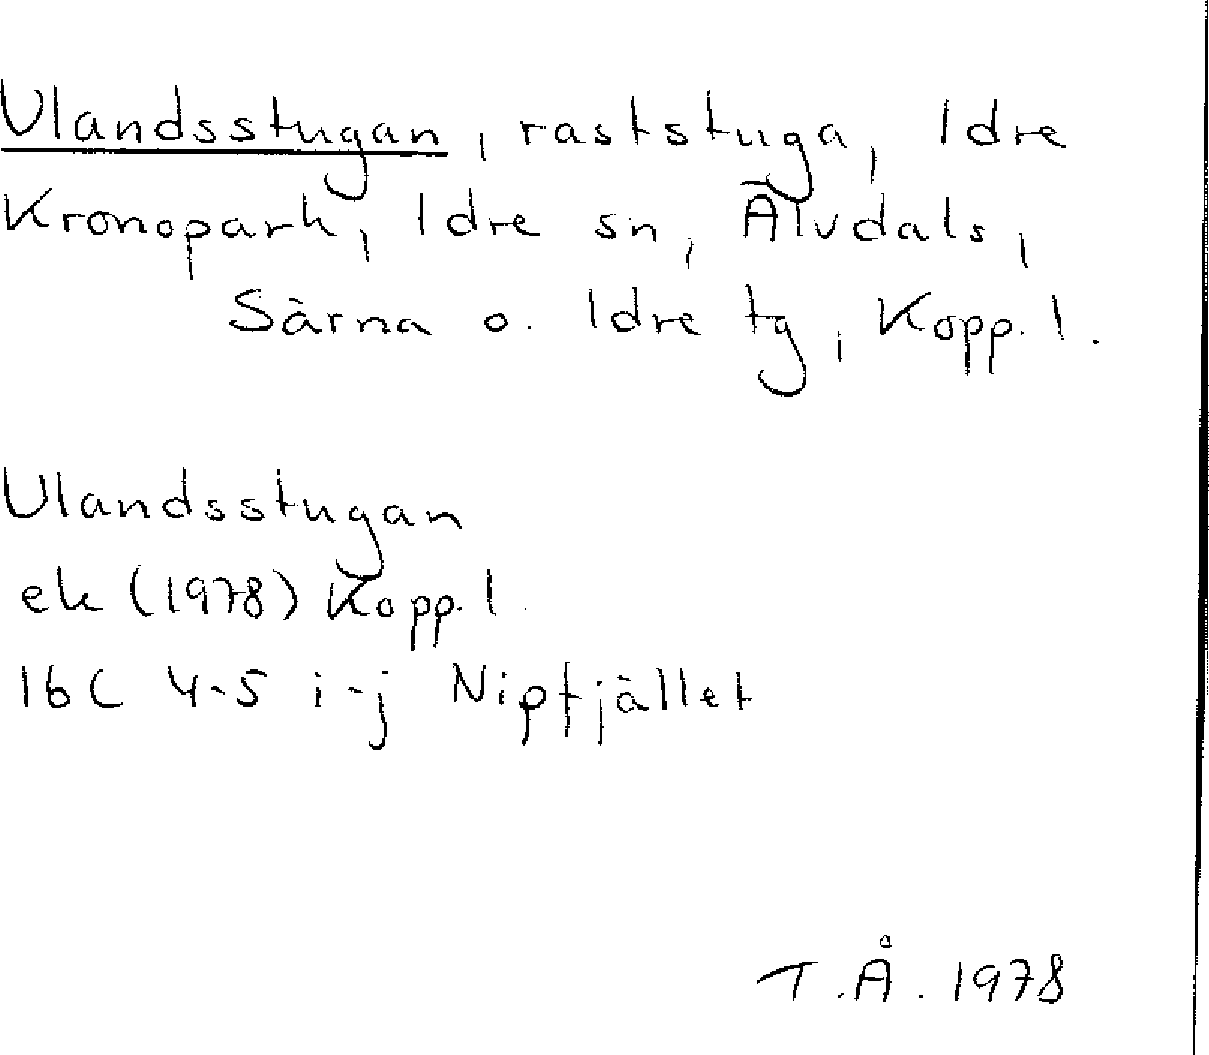 Ulandsstugan, raststuga, Idre
Kronopark, Idre sn, Älvdals,
Särna o. Idre tg, Kopp. l.
Ulandsstugan
ek (1978) Kopp. l.
16C 4-5 i-j Nipfjället
T.Å. 1978